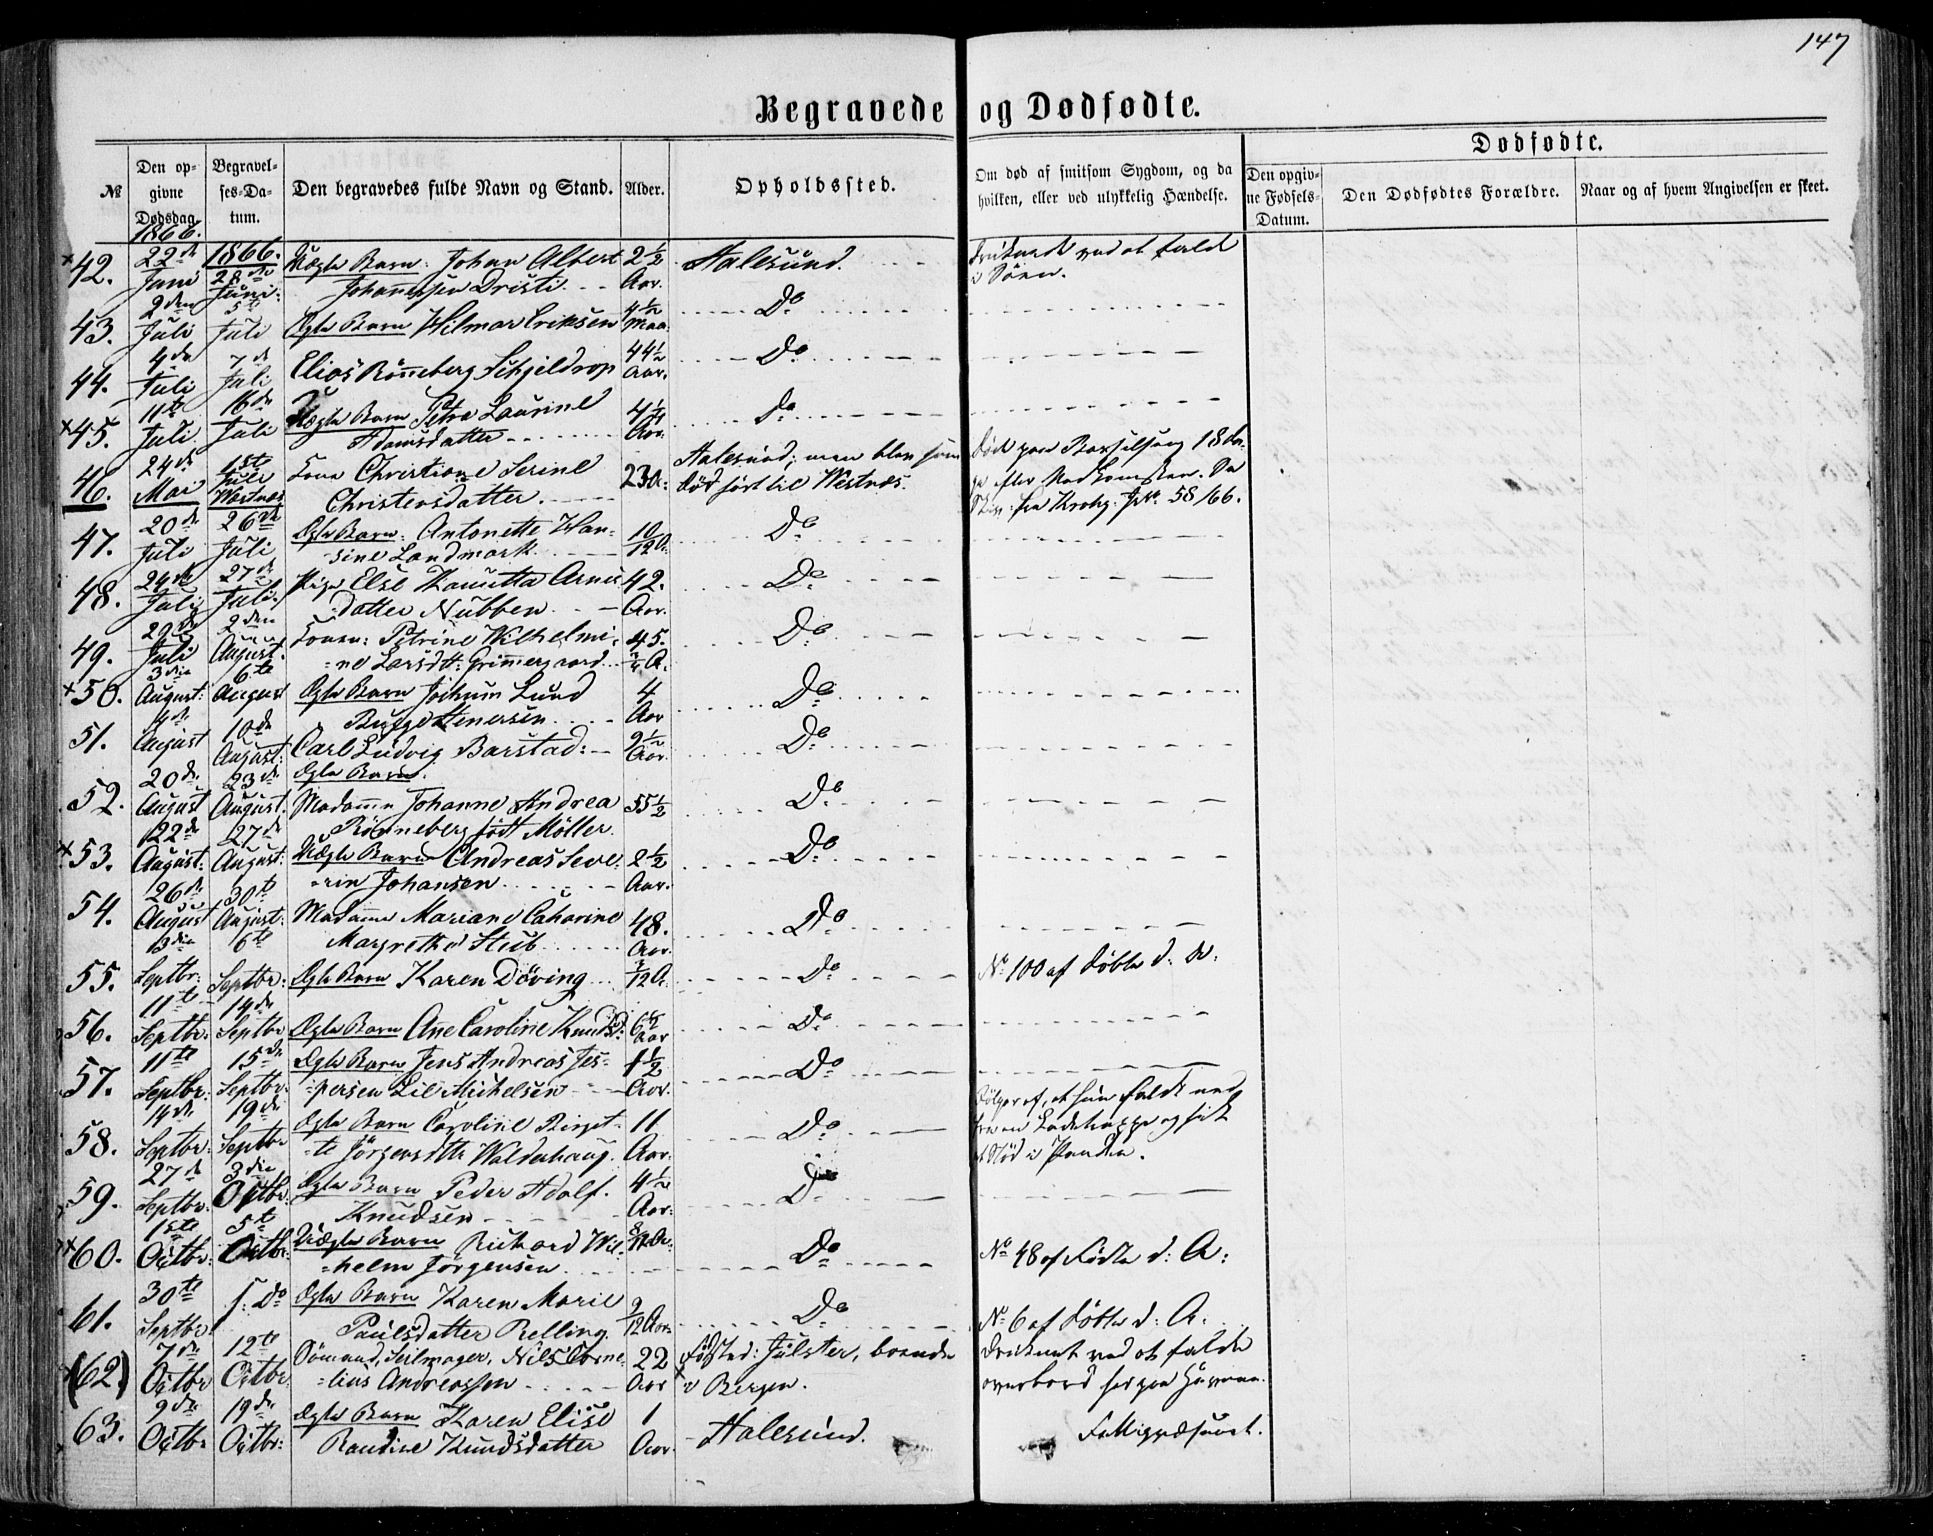 147
Begravede og Dødfødte.
Dødfødte.
№ Den opgivne Dødsdag. Begravelses-Datum. Den begravedes fulde Navn og Stand. Alder. Opholdssted. Om død af smitsom Sygdom, og da hvilken, eller ved ulykkelig Hændelse. Den opgivne Fødsels-Datum. Den Dødfødtes Forældre. Naar og af hvem Angivelsen er skeet.
1866. 1866.
×42. 22de Juni 28de Juni: Uægte Barn: Johan Albert 2½ Aalesund. Druknede ved at falde
Johannessen Aar. i Søen.
43. 2den Juli 5te Juli Ægte Barn Hilmar Eriksen 4½ Maa. Do
44. 4de Juli 7de Juli Elias Rönneberg Schjeldrop 44½ Aar. Do
×45. 11te Juli 16de Juli Uægte Barn Petra Laurine Do
Adamsdatter Aar.
46. 24de Mai 1ste Juli Westnæs Kone Christiane Serine 23 A: Aalesund; men blev som Død paa Barselseng
Christensdatter. død ført til Westnæs. 58/66.
47. 20de Juli 26de Juli Ægte Barn: Antonette Han- 10/12 A: Do
sine Landmark
48. 24de Juli 27de Juli Pige Else 42. Do
datter Nubben Aar.
49. 29de Juli 2den August: Konen: Petrine Wilhelmi- 45. Do
=ne Larsdtt: Grimmergaard A.
×50. 3die August: 6te August Ægte Barn Jochum Lund 4 Do
Bugge Aar
51. 4de August 10de August: Carl Ludvig Barstad: 9½ Aar. Do
Ægte Barn.
52. 20de August 23de August. Madamme Johanne Andrea 55½ Do
Rönneberg født Möller.
×53. 22de August: 27de August: Uægte Barn Andreas Seve- 2½ Do
=rin Johansen Aar.
54. 26de August 30te August: Madamme Mariane Catharine 48. Do
Margrethe Stub Aar.
55. 3die Septbr: 6te Septbr: Ægte Barn Karen Döving 12 A: Do No 100 af Døbte d. A:
56. 11te Septbr: 14de Septbr Ægte Barn Ane Caroline Knudsd: Aar Do
57. 11te Septbr: 15de Septbr. Ægte Barn Jens Andreas Jes- 1½ Do
=persen Lil Michelsen Aar.
58. 14de Septbr: 19de Septbr Ægte Barn Caroline Birget- 11 Do Følge af, at hun faldt ned
=te Jörgensdtt Walderhaug. Aar. fra en Ladetrappe og fik
et Stød i Panden.
59. 27de Septbr: 3die Octbr. Ægte Barn Peder Adolf. 4½ Do
Knudsen Aar:
×60. 1ste Octbr: 5te Octbr: Uægte Barn Rickard Wil- Do No 48 af Fødte d: A:
=helm Jörgensen
61. 30te Septbr 5: Do Ægte Barn Karen Marie 9/12 Aar: Do No 6 af Døbte d: A.
Paulsdatter Relling
(62) 7de Octbr 12te Octbr. Sömand, Seilmager, Nils Corne- 22 Födsted: Jülster, boende Druknet ved at falde
=lius Andreassen Aar i Bergen. overbord her paa Havnen.
63. 9de Octbr 19de Octbr: Ægte Barn Karen Elise 1 Aalesund. Fattigvæsenet.
Raudine Knudsdatter Aar.